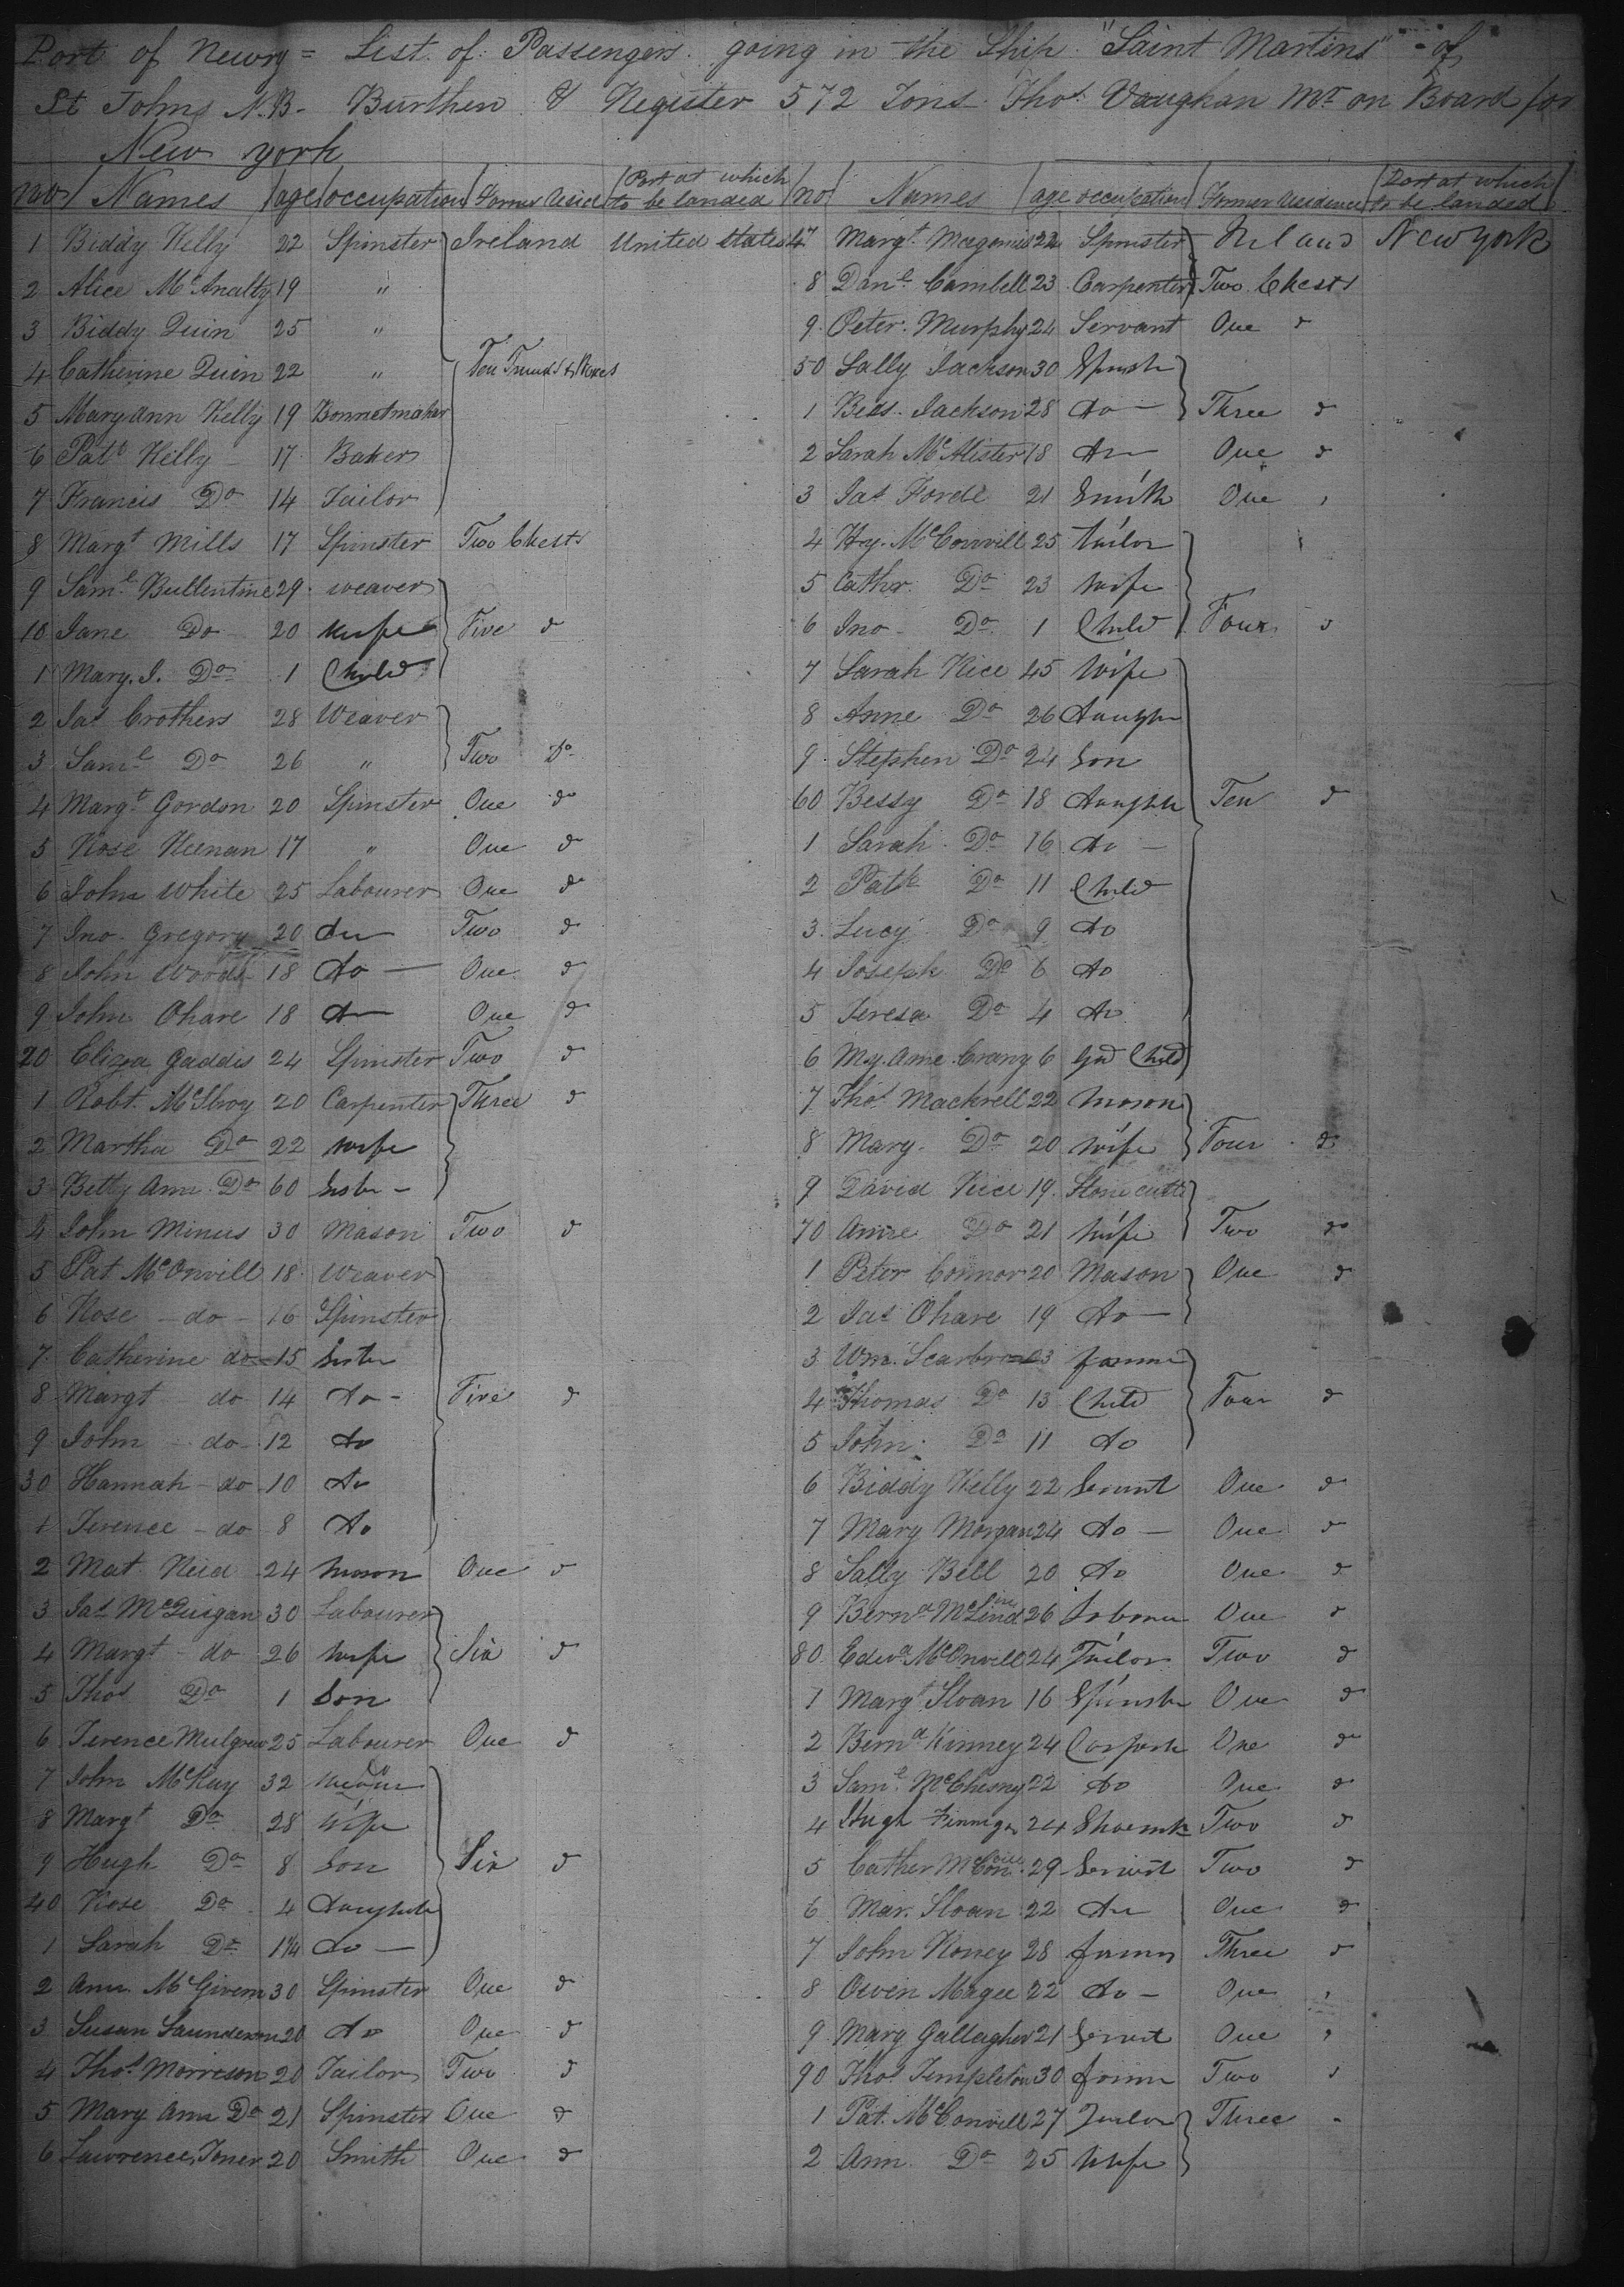 Port of Newry = List of Passengers going in the Ship "Saint Martins" of
St Johns N.B. Burthen & Register 572 Tons Thos Vaughan Mr on Board for
New york
nos Names age occupation Former Resid Port at which to be landed
1 Biddy Kelly 22 Spinster Ireland United States
2 Alice McAnalty 19 "
3 Biddy Quin 25 "
4 Catherine Quin 22 " Ten Trunks & Boxes
5 Maryann Kelly 19 Bonnetmaker
6 Patt Kelly 17 Baker
7 Francis Do 14 Tailor
8 Margt Mills 17 Spinster Two Chests
9 Saml Bullentine 29 weaver
10 Jane Do 20 wife Five d
1 Mary. J. Do 1 Child
2 Jas Crothers 28 Weaver
3 Saml Do 26 " Two Do
4 Margt Gordon 20 Spinster One do
5 Rose Keenan 17 " One d
6 John White 25 Labourer One d
7 Jno. Gregory 20 do Two d
8 John Woods 18 do One d
9 John Ohare 18 do One d
20 Eliza Gaddis 24 Spinster Two d
1 Robt. McIlroy 20 Carpenter Three d
2 Martha Do 22 wife
3 Betty Ann Do 60 Sister
4 John Minus 30 Mason Two d
5 Pat McOnvill 18 Weaver
6 Rose do 16 Spinster
7 Catherine do 15 Sister
8 Margt do 14 do Five d
9 John do 12 do
30 Hannah do 10 do
1 Terence do 8 do
2 Mat Reid 24 mason One d
3 Jas McQuigan 30 Labourer
4 Margt do 26 wife Six d
5 Thos Do 1 Son
6 Terence Mulgrew 25 Labourer One d
7 John McKay 32 weaver
8 Margt Do 28 wife
9 Hugh Do 8 Son Six d
40 Rose Do 4 daughter
1 Sarah Do 1 1/4 do
2 Ann McGivern 30 Spinster One d
3 Susan Saunderson 20 do One d
4 Thos Morrison 20 Tailor Two d
5 Mary Ann Do 21 Spinster One d
6 Lawrence Toner 20 Smith One d
no Names age occupation Former Residence Port at which to be landed
47 Margt Magenis 22 Spinster Ireland New York
8 Danl Cambell 23 Carpenter Two Chests
9 Peter Murphy 24 Servant One d
50 Sally Jackson 30 Spinstr
1 Bess Jackson 28 do Three d
2 Sarah McAlister 18 do One d
3 Jas Forde 21 Smith One
4 Hy. McConvill 25 tailor
5 Cathr. Do 23 wife
6 Jno Do 1 Child Four d
7 Sarah Rice 45 wife
8 Anne Do 26 daughter
9 Stephen Do 24 Son
60 Bessy Do 18 daughter Ten d
1 Sarah Do 16 do
2 Patk Do 11 Child
3 Lucy Do 9 do
4 Joseph Do 6 do
5 Teresa Do 4 do
6 My. Anne Crany 6 Gd Child
7 Thos Mackrell 22 mason
8 Mary Do 20 wife Four d
9 David Rice 19 Stone cutter
70 Anne Do 21 wife Two do
1 Peter Connor 20 Mason One d
2 Jas Ohare 19 do
3 Wm. Scarbro farmer
4 Thomas Do 13 Child Four d
5 John Do 11 do
6 Biddy Kelly 22 Servnt One d
7 Mary Morgan 24 do One d
8 Sally Bell 20 do One d
9 Bernd McLind 26 Labourer One d
80 Edwd McOnvill 24 Tailor Two d
1 Margt Sloan 16 Spinster One d
2 Bernd Kinney 24 Carpentr One do
3 Saml McChesny 22 do One d
4 Hugh Finnigan 24 Shoemk Two d
5 Cather McConvill 29 Servnt Two d
6 Mar. Sloan 22 do One d
7 John Honey 28 farmer Three d
8 Owen Magee 22 do One
9 Mary Gallagher 21 Servnt One
90 Thos Templeton 30 farmer Two
1 Pat. McConvill 27 Tailor Three
2 Ann Do 25 wife